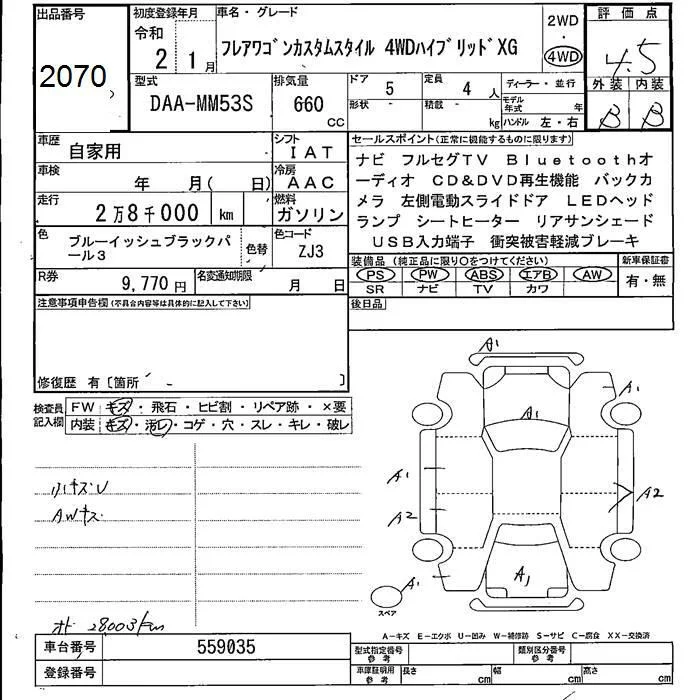 出品番号
2070
初度登録年月
令和
2 1月
車名・グレード
フレアワゴンカスタムスタイル 4WDハイブリッドXG
2WD
・
4WD
評価点
4.5
外装 内装
B B
型式
DAA-MM53S
排気量
660
CC
ドア 5
形状 -
定員 4人
積載 - kg
ディーラー・並行
モデル年式 年
ハンドル 左・右
車歴
自家用
シフト
IAT
車検
年 月( 日)
冷房
AAC
走行
2万8千000 km
燃料
ガソリン
色
ブルーイッシュブラックパ
ール3
色替
色コード
ZJ3
R券
9,770円
名変通知期限
月 日
セールスポイント(正常に機能するものに限ります)
ナビ フルセグTV Bluetoothオ
ーディオ CD&DVD再生機能 バックカ
メラ 左側電動スライドドア LEDヘッド
ランプ シートヒーター リアサンシェード
USB入力端子 衝突被害軽減ブレーキ
装備品(純正品に限り○をつけてください)
PS PW ABS エアB AW
SR ナビ TV カワ
新車保証書
有・無
後日品
注意事項申告欄(不具合内容等は具体的に記入して下さい)
修復歴 有〔箇所 - 〕
検査員
記入欄
FW キズ・飛石・ヒビ割・リペア跡・×要
内装 キズ・汚レ・コゲ・穴・スレ・キレ・破レ
小キズU
AWキズ
オド 28003km
A1
A1
A1
A1
A2
A2
A1
A1
スペア
A-キズ E-エクボ U-凹み W-補修跡 S-サビ C-腐食 XX-交換済
車台番号
559035
登録番号
型式指定番号
参考
類別区分番号
参考
車庫証明用
参考
長さ cm
幅 cm
高さ cm